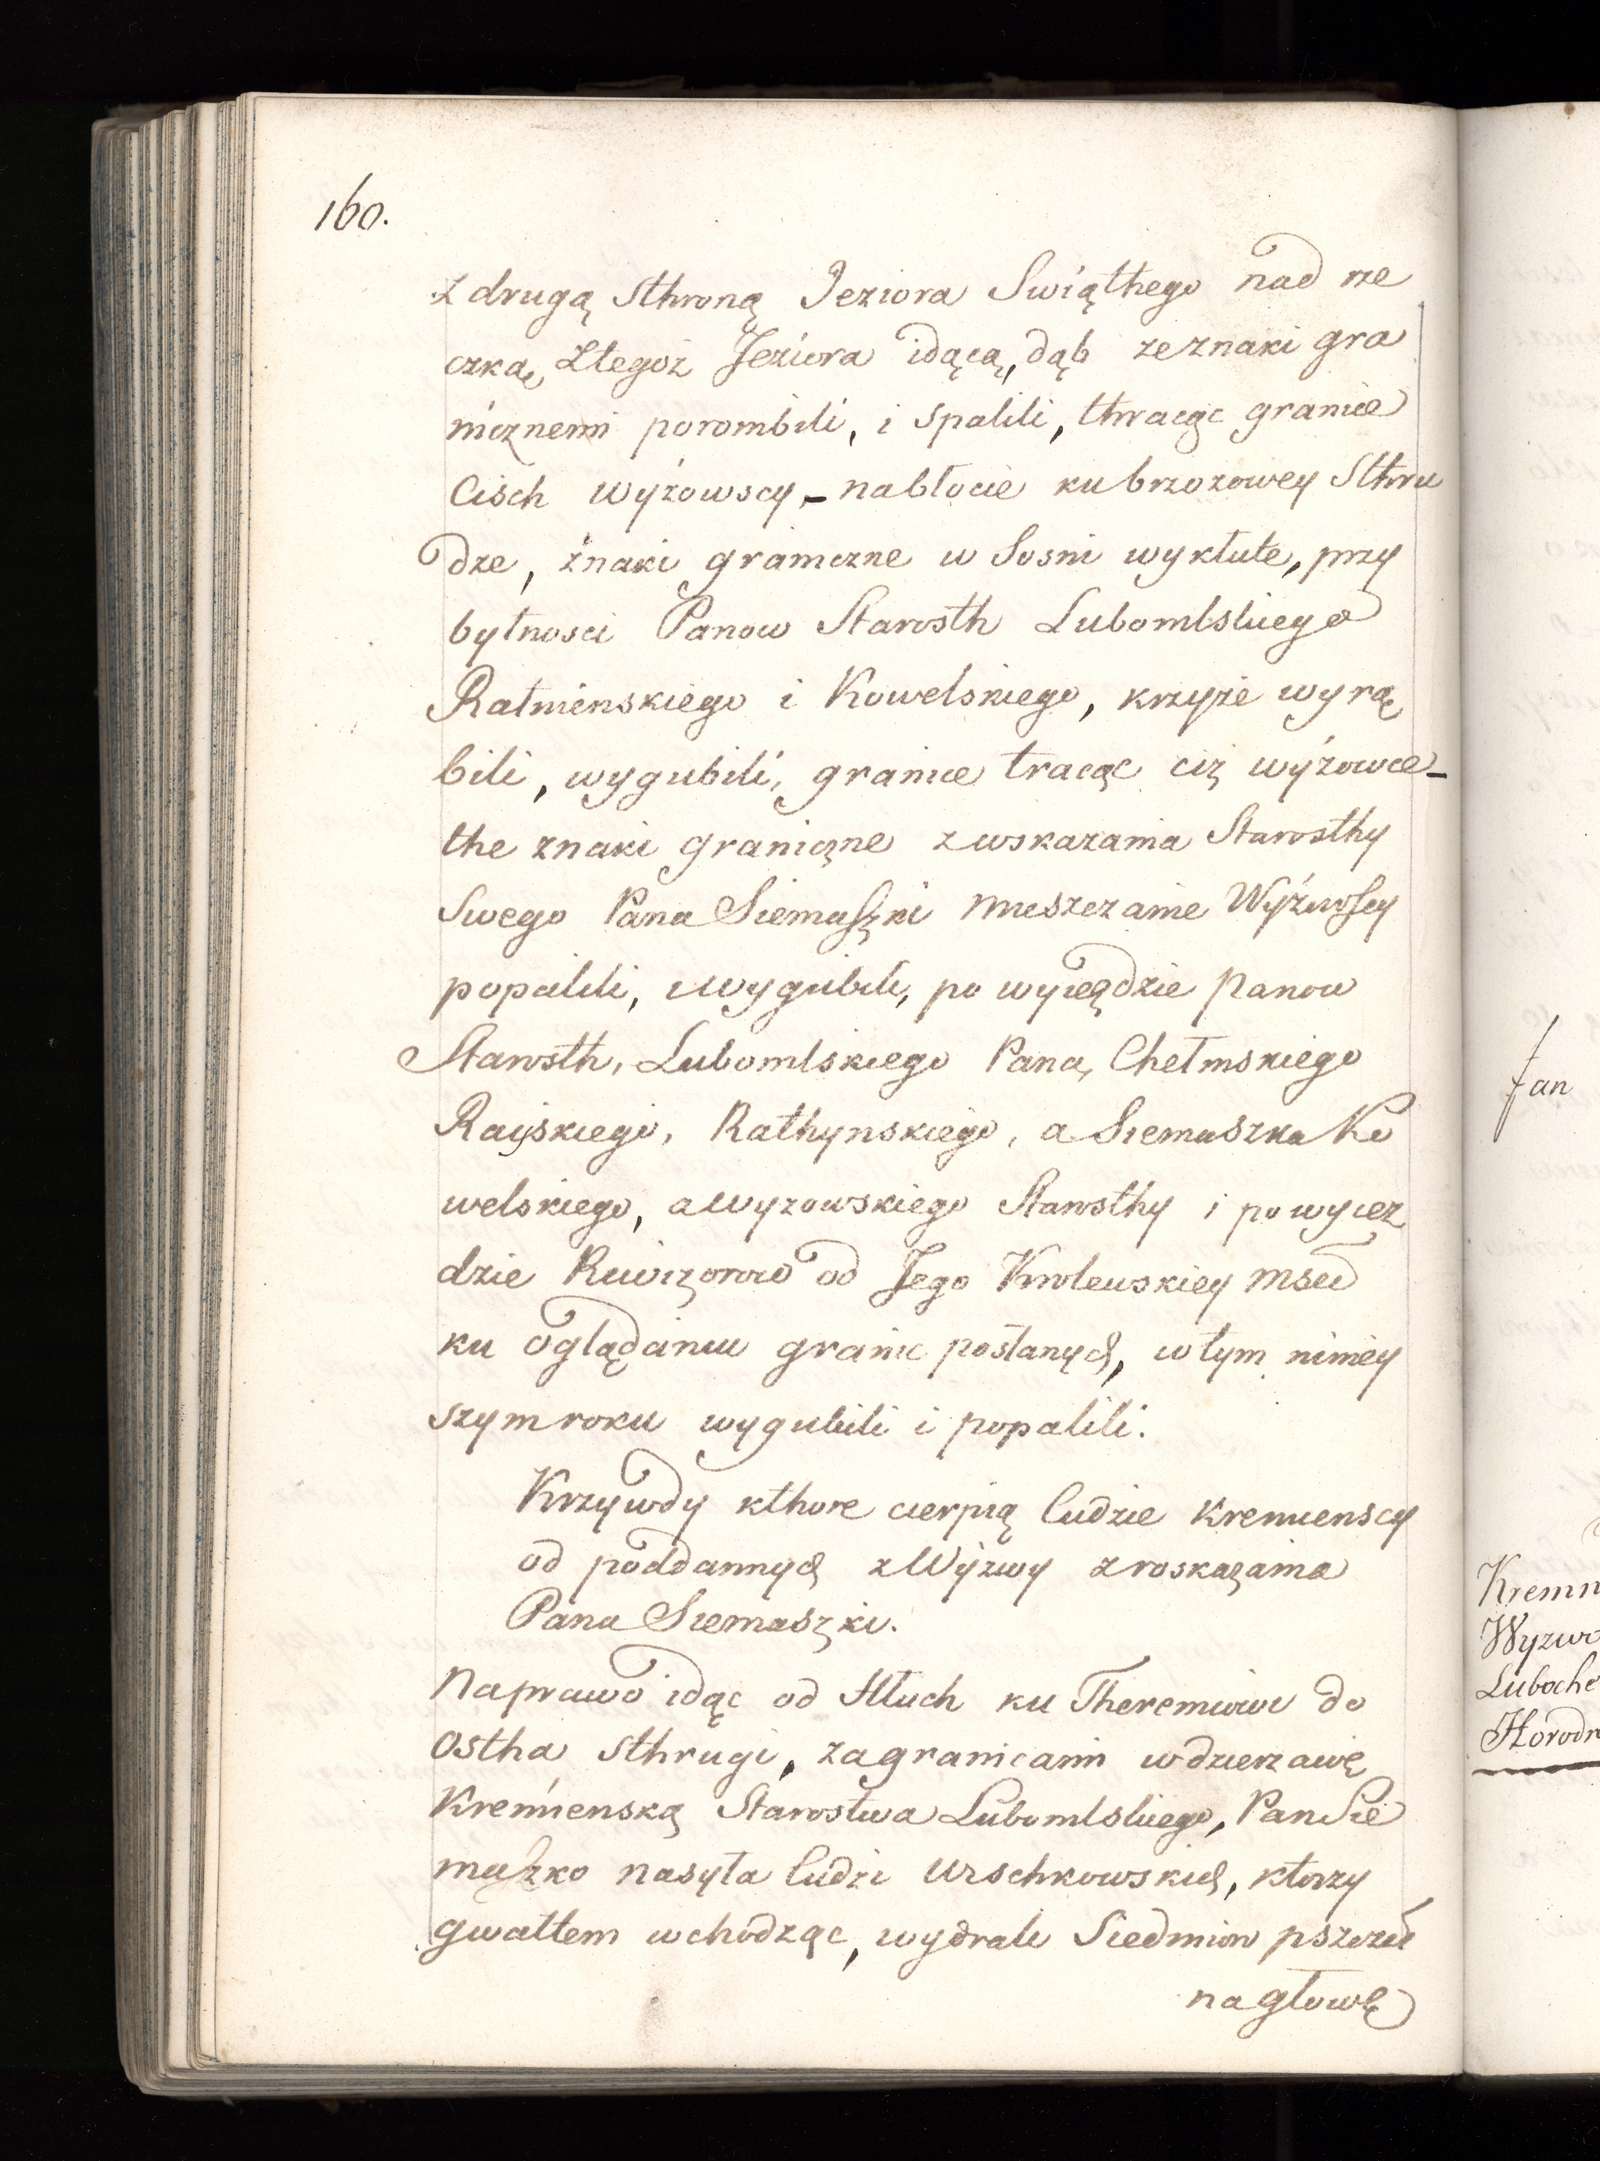 160.
z drugą sthroną Jeziora Swiąthego nad rze
czką, Ztegoż Jeziora idącą, dąb ze znaki gra
nicznemi porombili, i spalili, thracąc granice
Cisch Wyżowscy, – nabłocie ku brzozowey Sthru
dze, znaki graniczne w Sosni wykłute, przy
bytnosci Panow Starosth Lubomlskiego
Ratnienskiego i Kowelskiego, krzyże wyrą
bili, wygubili, granice tracąc ciż wyżowce –
the znaki graniczne z wskazania Starosthy
Swego Pana Siemaszki mieszczanie Wyżwoscy
popalili, wygubili, po wyiezdzie Panow
Starosth, Lubomlskiego Pana, Chełmskiego
Rayskiego, Rathynskiego, a Siemaszka Ko
welskiego, a Wyzowskiego Starosthy i po wyiez
dzie Rewizorow od Jego Krolewskiey Msci
ku oglądaniu granic posłanych, w tym niniey
szym roku wygubili i popalili.
Krzywdy kthore cierpią ludzie Kremienscy
od poddannych z Wyzwy z roskazania
Pana Siemaszki.
Naprawo idąc od Hluch ku Theremiowi do
Ostha sthrugi, za granicami w dzierzawię
Kremienską Starostwa Lubomlskiego, Pan Sie
maszko nasyła ludzi Urschkowskich, ktorzy
gwałtem wchodząc, wydrali Siedmior pszczoł
na głowę
Jan
Kremn
Wyzwo
Luboche
Horodn